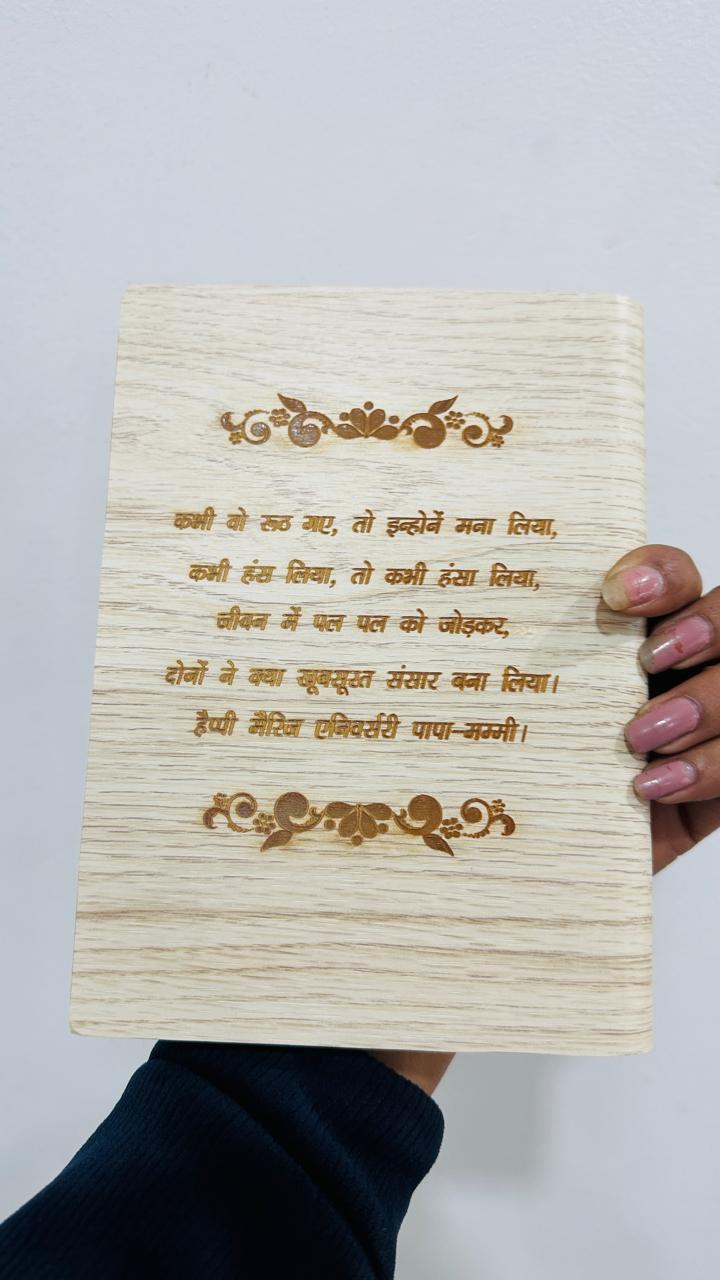 कभी वो रूठ गए, तो इन्होनें मना लिया,
कभी हंस लिया, तो कभी हंसा लिया,
जीवन में पल पल को जोड़कर,
दोनों ने क्या खूबसूरत संसार बना लिया।
हैप्पी मैरिज एनिवर्सरी पापा-मम्मी।